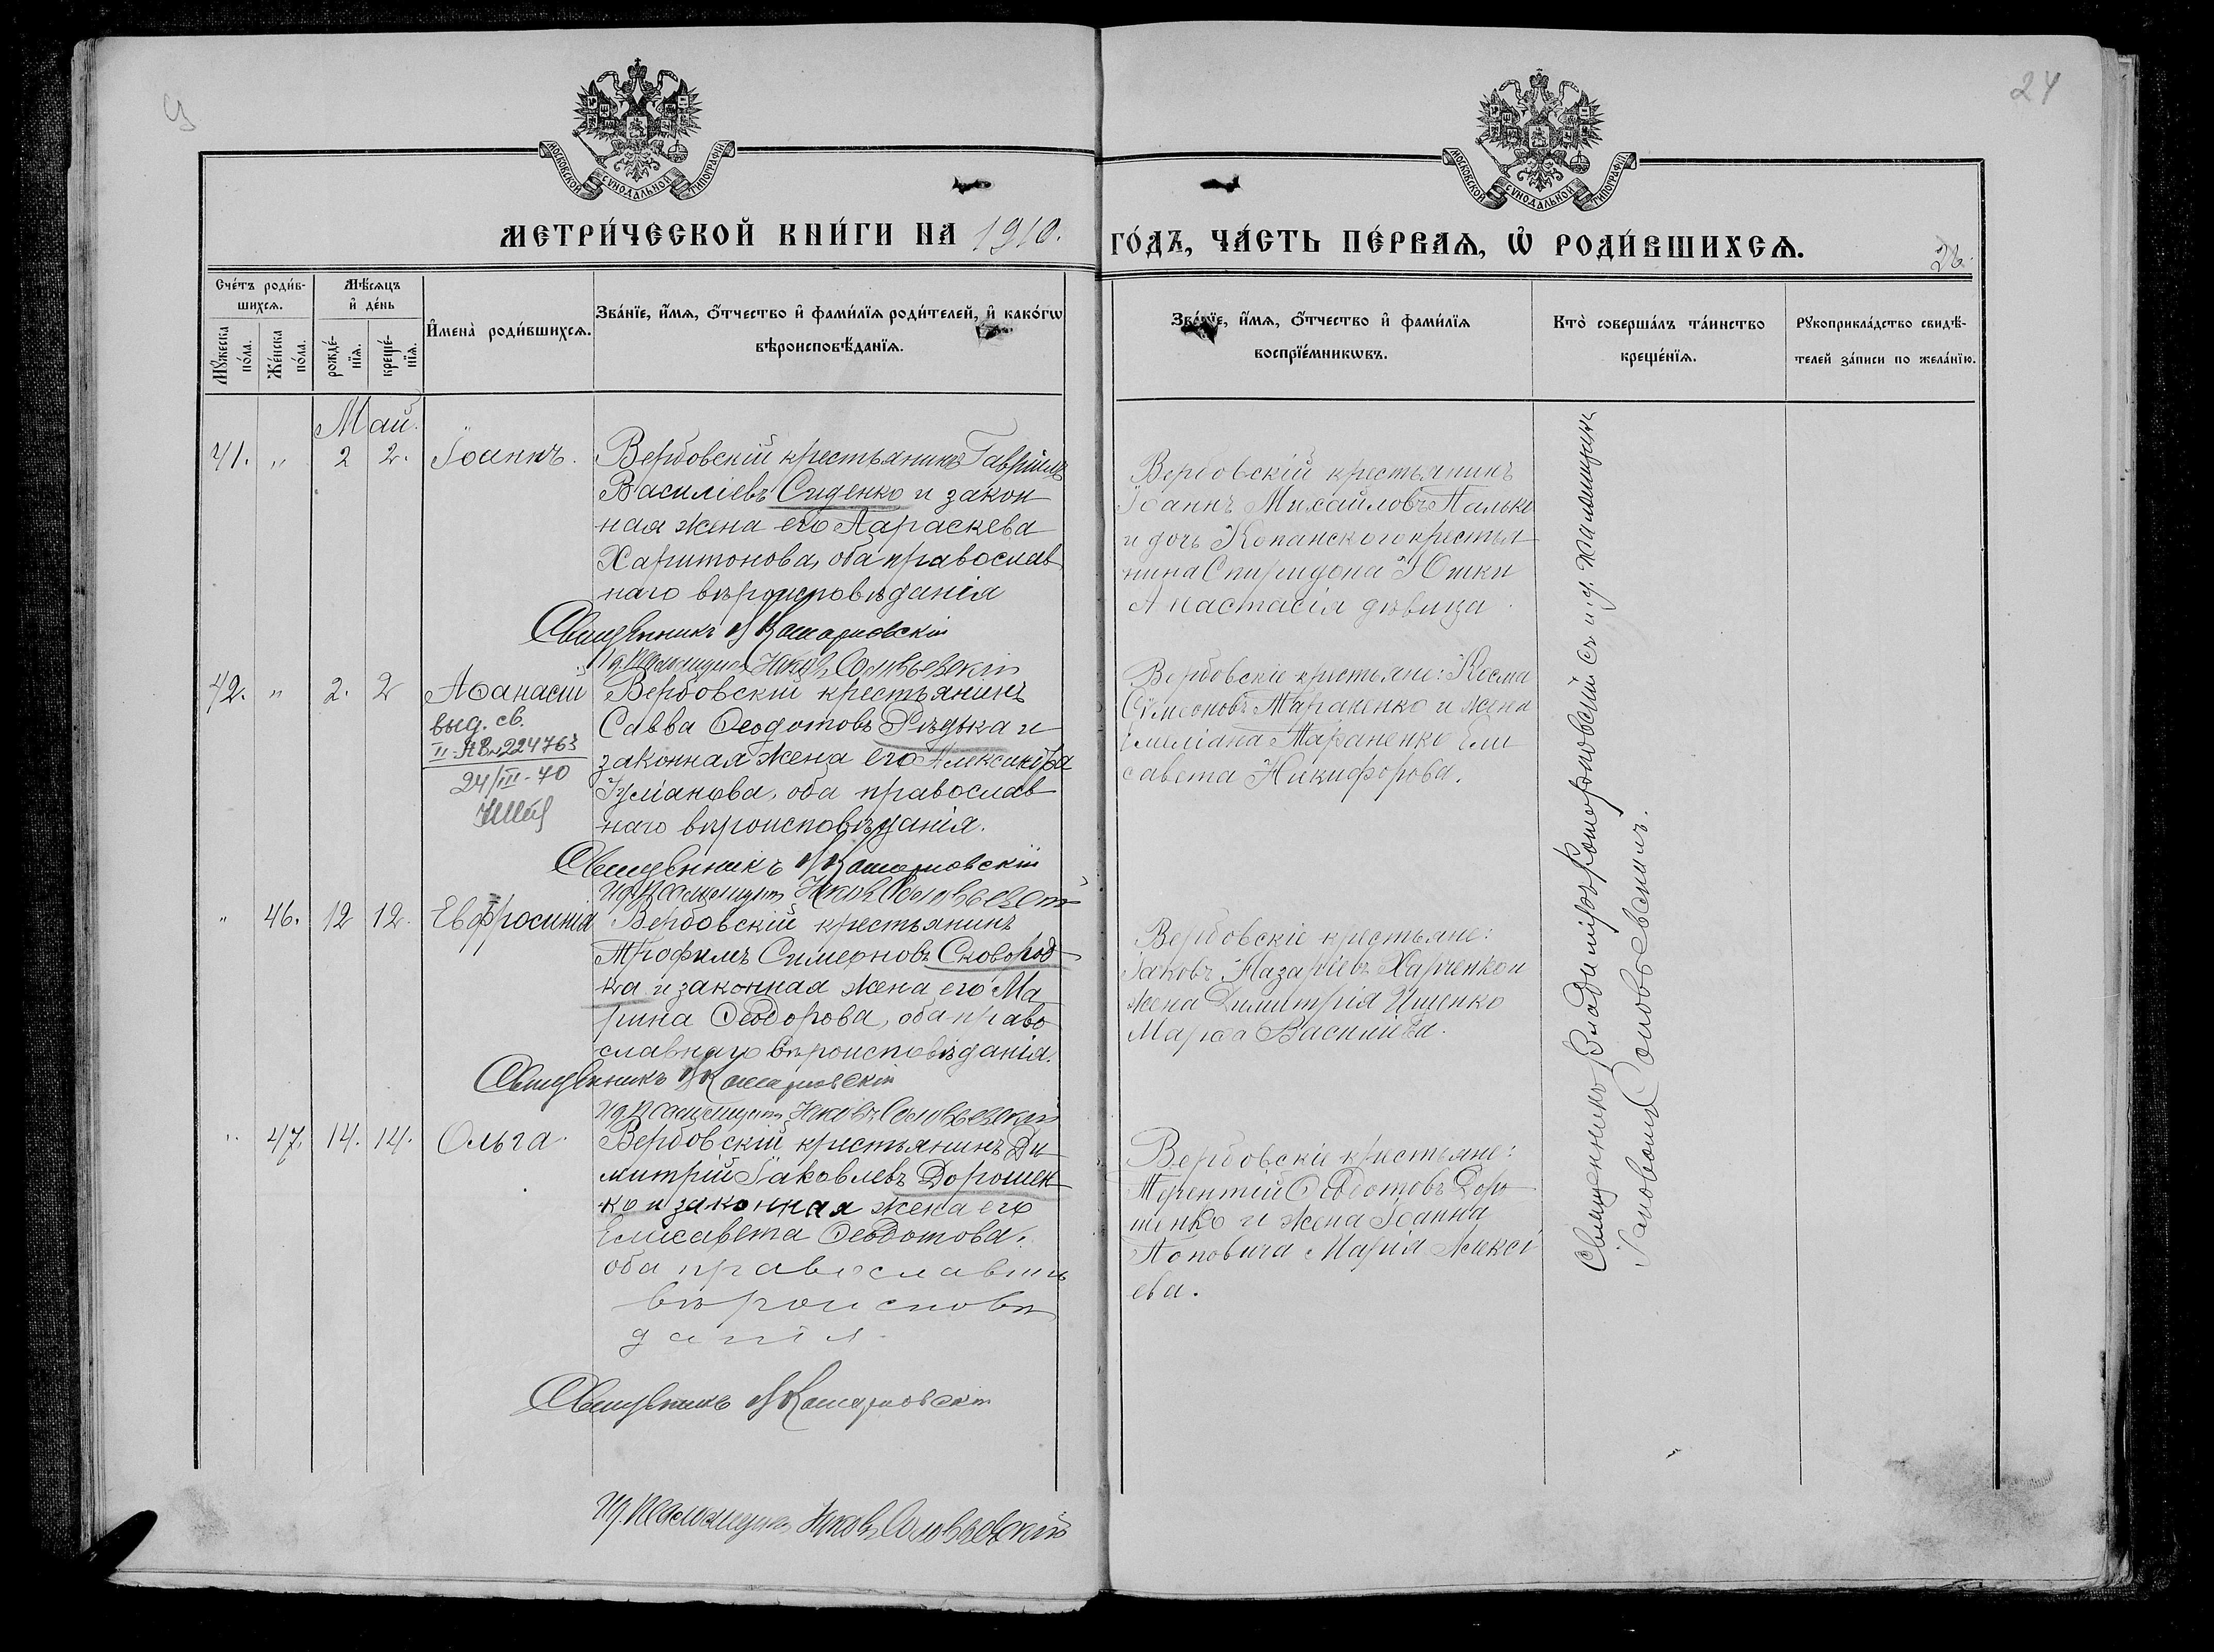 24
МОСКОВСКОЙ СѴНОДАЛЬНОЙ ТИПОГРАФІИ
МОСКОВСКОЙ СѴНОДАЛЬНОЙ ТИПОГРАФІИ
МЕТРИ́ЧЕСКОЙ КНИ́ГИ НА 1910.
ГО́ДЪ, ЧА́СТЬ ПЕ́РВАѦ, Ѡ҆ РОДИ́ВШИХСѦ.
26.
Сче́тъ роди́в-
шихсѧ.
Мꙋ́жеска по́ла.
Же́нска по́ла.
Мѣ́сѧцъ
и҆ де́нь
рожде́-
нїѧ.
креще́-
нїѧ.
И҆мена̀ роди́вшихсѧ.
Зва́нїе, и҆́мѧ, ѻ҆́тчество и҆ фами́лїѧ роди́телей, и҆ како́гѡ
вѣроисповѣ́данїѧ.
Зва́нїе, и҆́мѧ, ѻ҆́тчество и҆ фами́лїѧ
воспрїе́мникѡвъ.
Кто̀ соверша́лъ та́инство
креще́нїѧ.
Рꙋкоприкла́дство свидѣ́-
телей за́писи по жела́нїю.
Май.
41. " 2 2. Іоаннъ.
Вербовскій крестьянинъ Гавріилъ
Василіевъ Сиденко и закон
ная жена его Параскева
Харитонова, оба православ
наго вѣроисповѣданія
Священникъ В Комарновскій
Псаломщикъ Яковъ Соловьевскій
Вербовскій крестьянинъ
Іоаннъ Михайловъ Палько
и дочь Копанского крестья
нина Спиридона Юшки
Анастасія дѣвица.
42. " 2. 2 Аѳанасій
выд. св.
II-АВ №224763
24/III-70
Вербовскій крестьянинъ
Савва Ѳеодотовъ Рѣдька и
законная жена его Александра
Іуліанова, оба православ
наго вѣроисповѣданія.
Священникъ В Комарновскій
Псаломщикъ Яковъ Соловьевскій
Вербовскіе крестьяне: Косма
Сѵмеоновъ Тараненко и жена
Емеліана Тараненко Ели
савета Никифорова.
" 46. 12 12. Евфросинія
Вербовскій крестьянинъ
Трофимъ Симеоновъ Сковород
ка и законная жена его Ма
рина Ѳеодорова, оба право
славнаго вѣроисповѣданія.
Священникъ В Комарновскій
Псаломщикъ Яковъ Соловьевскій
Вербовскіе крестьяне:
Іаковъ Назаріевъ Харченко и
жена Димитрія Ищенко
Марѳа Василіева.
" 47. 14. 14. Ольга.
Вербовскій крестьянинъ Ди
митрій Іаковлевъ Дорошен
ко и законная жена его
Елисавета Ѳеодотова,
оба православнаго
вѣроисповѣ
данія.
Священникъ В Комарновскій
Псаломщикъ Яковъ Соловьевскій
Вербовскіе крестьяне:
Терентій Ѳеодотовъ Доро
шенко и жена Іоанна
Поповича Марія Алексі
ева.
Священникъ Владиміръ Комарновскій съ и.д. псаломщика
Іаковомъ Соловьевскимъ.